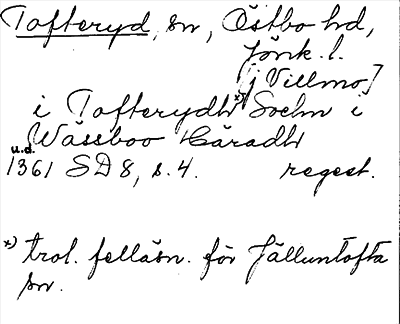 Tofteryd, sn, Östbo hd,
Jönk. l.
[j Villmo]
i Tofterydh x) Sochn i
Wässboo Häradh
u.d.
1361 SD 8, s. 4. regest.
x) trol. felläsn. för Jälluntofta
sn.